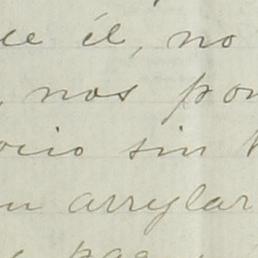 ce él, no
, nos pon
ocio sin
arreglar